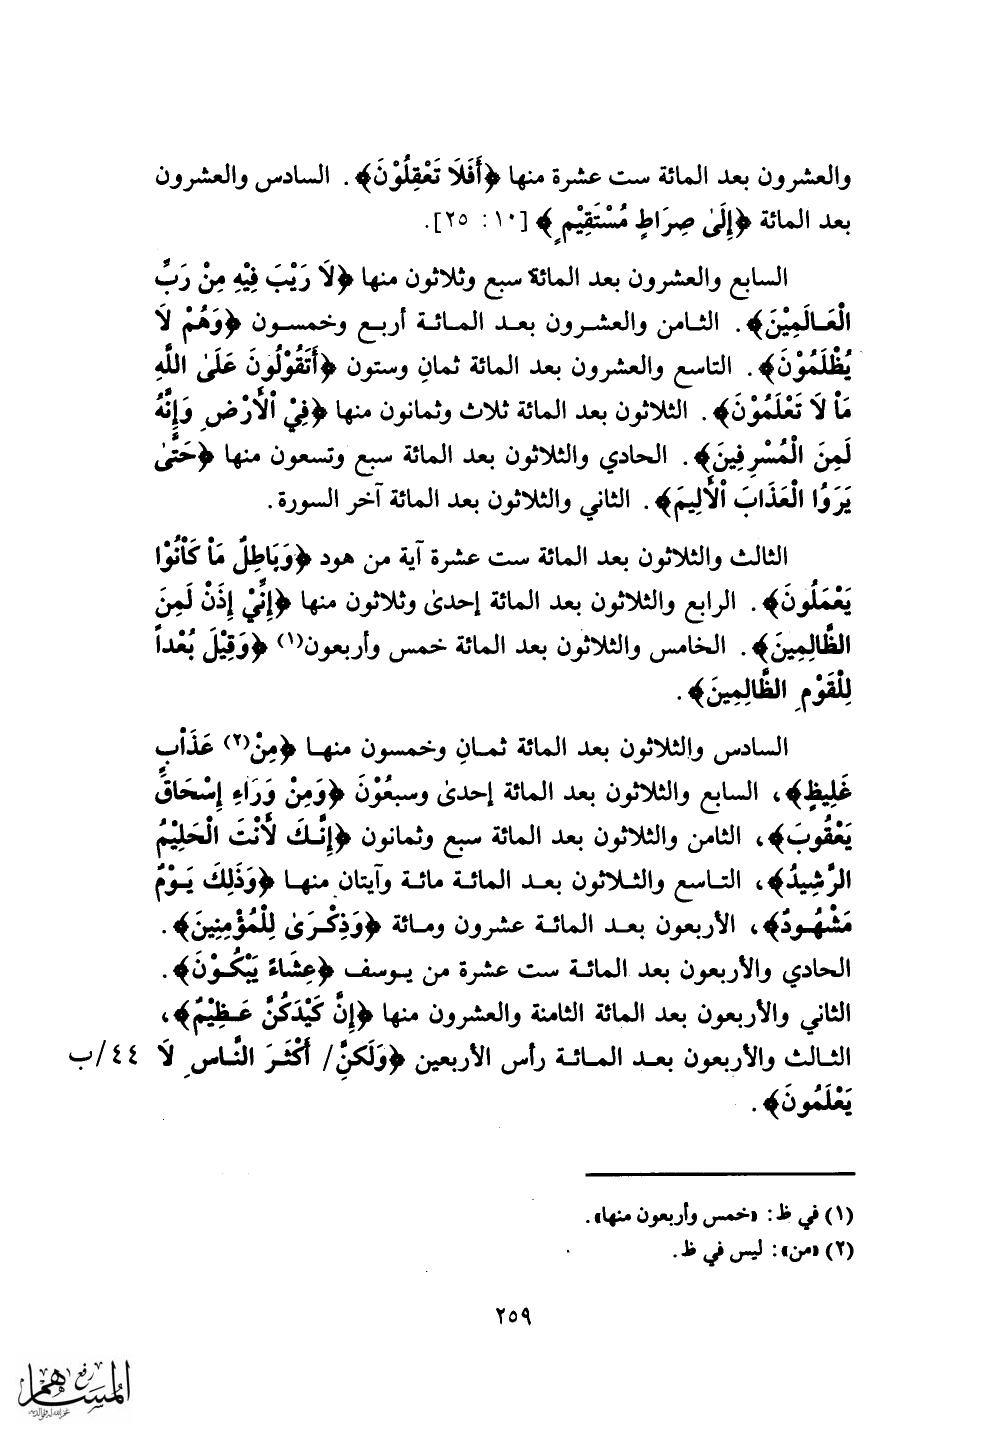 والعشرون بعد المائة ست عشرة منها ﴿أَفَلَا تَعْقِلُوْنَ﴾. السادس والعشرون
بعد المائة ﴿إِلَىٰ صِرَاطٍ مُسْتَقِيْمٍ﴾ [١٠: ٢٥].
السابع والعشرون بعد المائة سبع وثلاثون منها ﴿لَا رَيْبَ فِيْهِ مِنْ رَبِّ
الْعَالَمِيْنَ﴾. الثامن والعشرون بعد المائة أربع وخمسون ﴿وَهُمْ لَا
يُظْلَمُوْنَ﴾. التاسع والعشرون بعد المائة ثمانِ وستون ﴿أَتَقُوْلُونَ عَلَىٰ اللَّهِ
مَاْ لَا تَعْلَمُوْنَ﴾. الثلاثون بعد المائة ثلاث وثمانون منها ﴿فِيْ اْلأَرْضِ وَإِنَّهُ
لَمِنَ الْمُسْرِفِينَ﴾. الحادي والثلاثون بعد المائة سبع وتسعون منها ﴿حَتَّىٰ
يَرَوُا الْعَذَابَ اْلأَلِيمَ﴾. الثاني والثلاثون بعد المائة آخر السورة.
الثالث والثلاثون بعد المائة ست عشرة آية من هود ﴿وَبَاطِلٌ مَاْ كَاْنُوْا
يَعْمَلُونَ﴾. الرابع والثلاثون بعد المائة إحدىٰ وثلاثون منها ﴿إِنِّيْ إِذَنْ لَمِنَ
الظَّالِمِينَ﴾. الخامس والثلاثون بعد المائة خمس وأربعون(١) ﴿وَقِيْلَ بُعْداً
لِلْقَوْمِ الظَّالِمِينَ﴾.
السادس والثلاثون بعد المائة ثمانِ وخمسون منها ﴿مِنْ(٢) عَذَاْبٍ
غَلِيظٍ﴾، السابع والثلاثون بعد المائة إحدىٰ وسبعُوْنَ ﴿وَمِنْ وَرَاءِ إِسْحَاقَ
يَعْقُوبَ﴾، الثامن والثلاثون بعد المائة سبع وثمانون ﴿إِنَّكَ لَأَنْتَ الْحَلِيْمُ
الرَّشِيدُ﴾، التاسع والثلاثون بعد المائة مائة وآيتان منها ﴿وَذَلِكَ يَوْمٌ
مَشْهُودٌ﴾، الأربعون بعد المائة عشرون ومائة ﴿وَذِكْرَىٰ لِلْمُؤْمِنِينَ﴾.
الحادي والأربعون بعد المائة ست عشرة من يوسف ﴿عِشَاءً يَبْكُوْنَ﴾.
الثاني والأربعون بعد المائة الثامنة والعشرون منها ﴿إِنَّ كَيْدَكُنَّ عَظِيْمٌ﴾،
الثالث والأربعون بعد المائة رأس الأربعين ﴿وَلَكنَّ/ أَكْثَرَ النَّاسِ لَا ٤٤/ب
يَعْلَمُونَ﴾.
(١) في ظ: «خمس وأربعون منها».
(٢) «من»: ليس في ظ.
٢٥٩